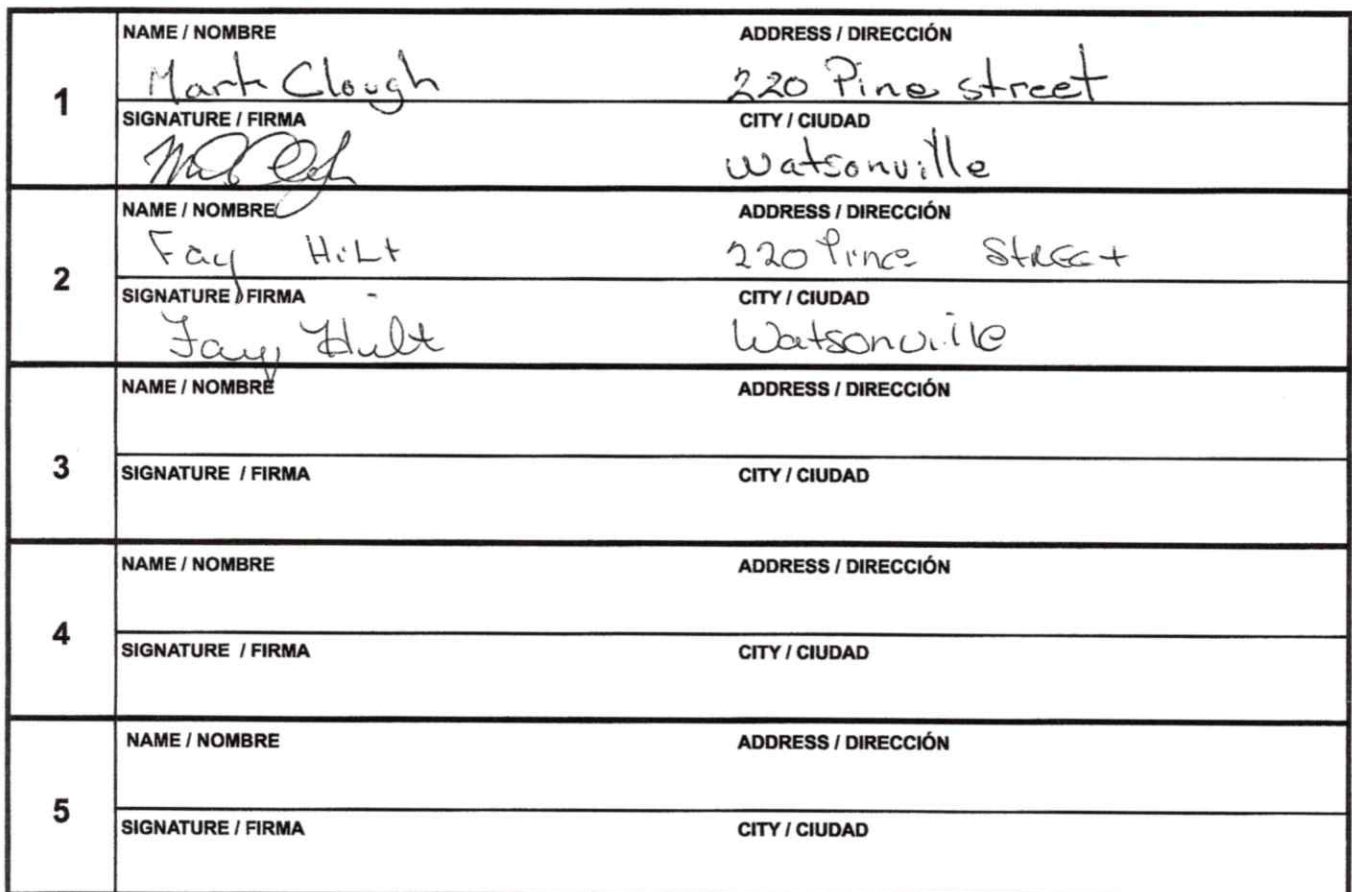 NAME / NOMBRE ADDRESS / DIRECCIÓN
Mark Clough 220 Pine street
1
SIGNATURE / FIRMA CITY / CIUDAD
Watsonville
NAME / NOMBRE ADDRESS / DIRECCIÓN
Fay Hilt 220 Pine Street
2
SIGNATURE / FIRMA CITY / CIUDAD
Fay Hilt Watsonville
NAME / NOMBRE ADDRESS / DIRECCIÓN
3
SIGNATURE / FIRMA CITY / CIUDAD
NAME / NOMBRE ADDRESS / DIRECCIÓN
4
SIGNATURE / FIRMA CITY / CIUDAD
NAME / NOMBRE ADDRESS / DIRECCIÓN
5
SIGNATURE / FIRMA CITY / CIUDAD